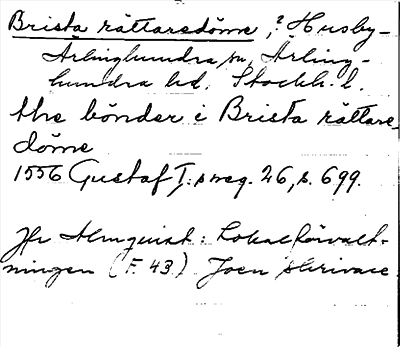 Brista rättaredöme, ? Husby-
Ärlinghundra sn, Ärling-
hundra hd. Stockh. l.
the bönder i Brista rättare-
döme
1556 Gustaf I:s reg. 26, s. 699.
Jfr Almquist: Lokalförvalt-
ningen (F. 43.) Joen skrivare